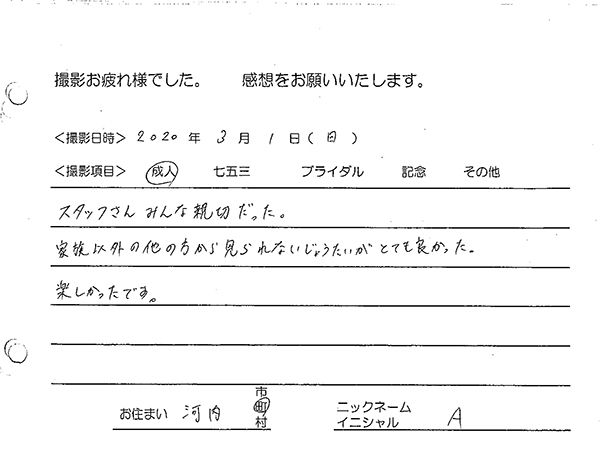 撮影お疲れ様でした。 感想をお願いいたします。
<撮影日時> 2020 年 3 月 1 日(日)
<撮影項目> 成人 七五三 ブライダル 記念 その他
スタッフさん みんな親切だった。
家族以外の他の方から見られないじょうたいが とても良かった。
楽しかったです。
お住まい 河内 市町村
ニックネーム イニシャル A